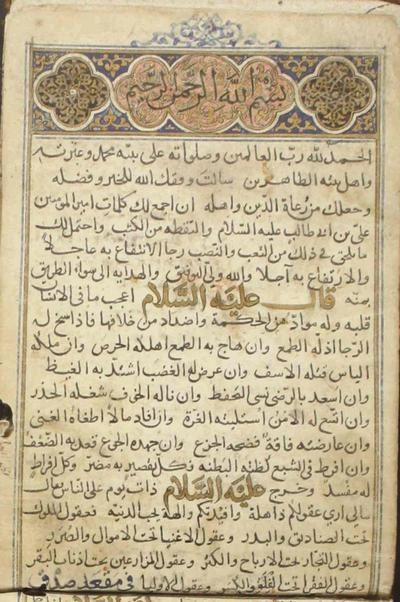 بسم الله الرحمن الرحيم
الحمد لله رب العالمين وصلواته على نبيه محمد وعترته
واهل بيته الطاهرين سالت وفقك الله للخير وفضله
وجعلك من رعاة الدين واهله ان اجمع لك كلمات امير المؤمنين
على بن ابى طالب عليه السلام والتقطه من الكتب واحتمل لك
ما يلحقنى فى ذلك من التعب والنصب رجا الانتفاع به عاجلا
والارتفاع به آجلا والله ولى التوفيق والهدايه الى سواء الطريق
بمنه قال عليه السلام اعجب ما فى الانسان
قلبه وله مواد من الحكمة واضداد من خلافها فاذا سنح له
الرجا اذله الطمع وان هاج به الطمع اهلكه الحرص وان ملكه
الياس قتله الاسف وان عرض له الغضب اشتد به الغيظ
وان اسعد بالرضى نسى التحفظ وان ناله الخوف شغله الحذر
وان اتسع له الامن استلبته الغرة وان افاد مالا اطغاه الغنى
وان عارضته فاقة فضحه الجزع وان جهده الجوع قعد به الضعف
وان افرط فى الشبع كظته البطنه فكل تقصير به مضر وكل افراط
له مفسد وخرج عليه السلام ذات يوم على الناس فقال
سالى ارى عقولكم ذاهلة وافيدتكم والهة لحب الدنيه فعقول الملوك
تحت الصناديق والبدر وعقول الاغنيا تحت الاموال والصرر
وعقول التجار تحت الارباح والكر وعقول المزارعين تحت اذناب البقر
وعقول الفقرا تحت وعقول الاوليا فى مقعد صدق